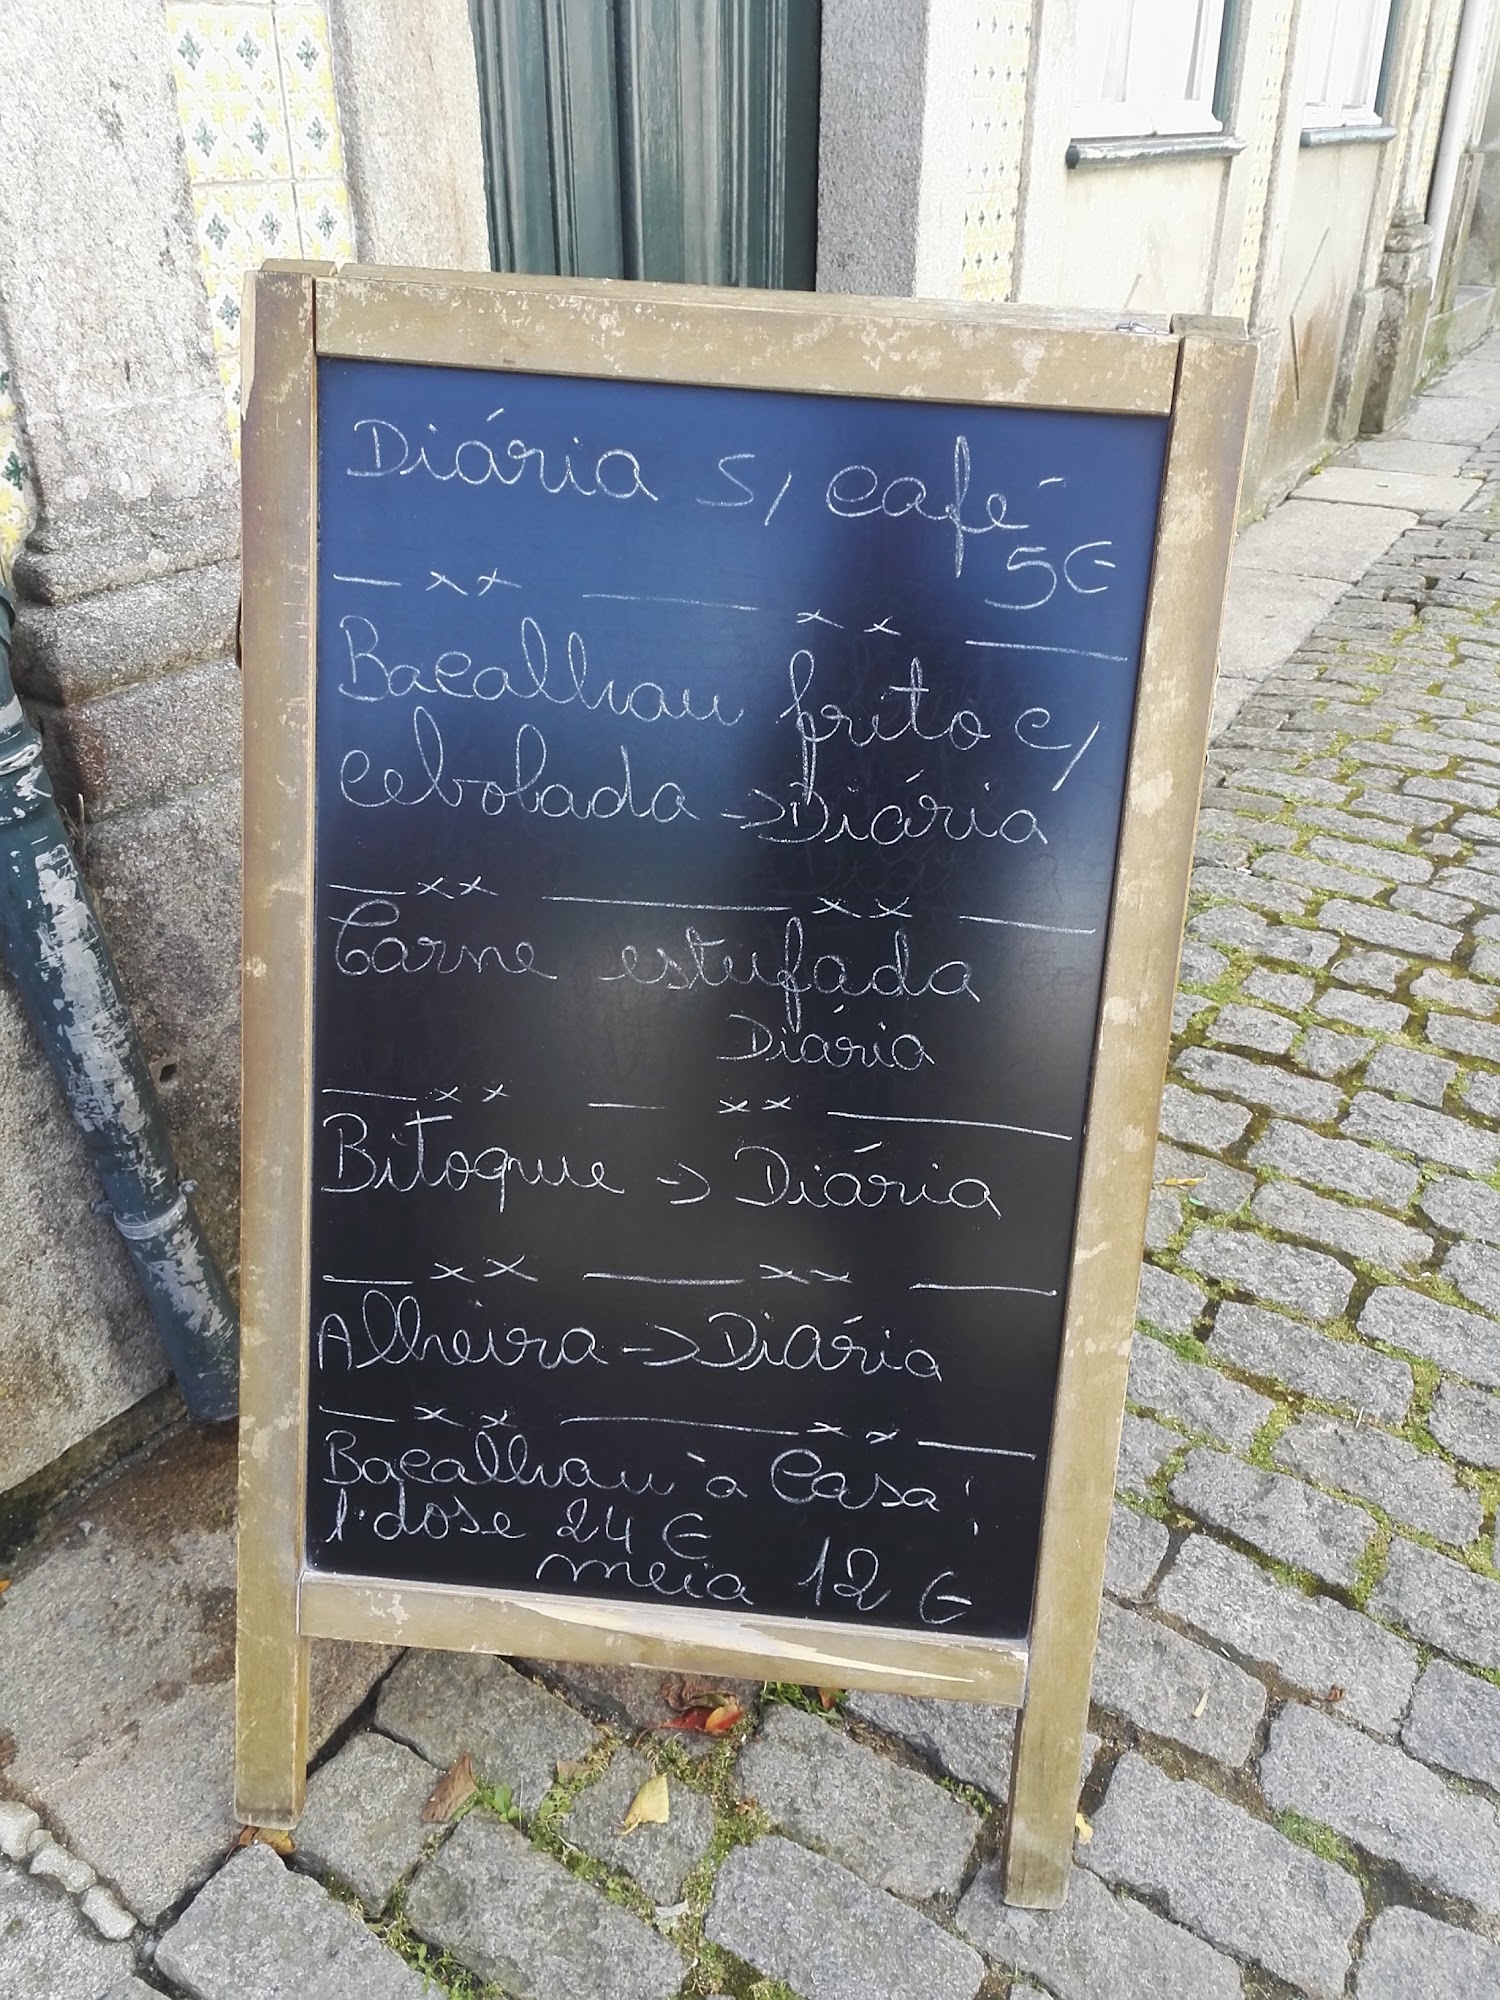 Diária s/ café
5€
Bacalhau frito c/
cebolada -> Diária
Carne estufada
Diária
Bitoque -> Diária
Alheira -> Diária
Bacalhau à Casa!
1. dose 24 €
meia 12 €